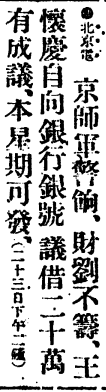 ●北京電 京師軍警餉、財劉不籌、王
懷慶自向銀行銀號議借二十萬
有成議、本星期可發、（二十三日下午二鐘）